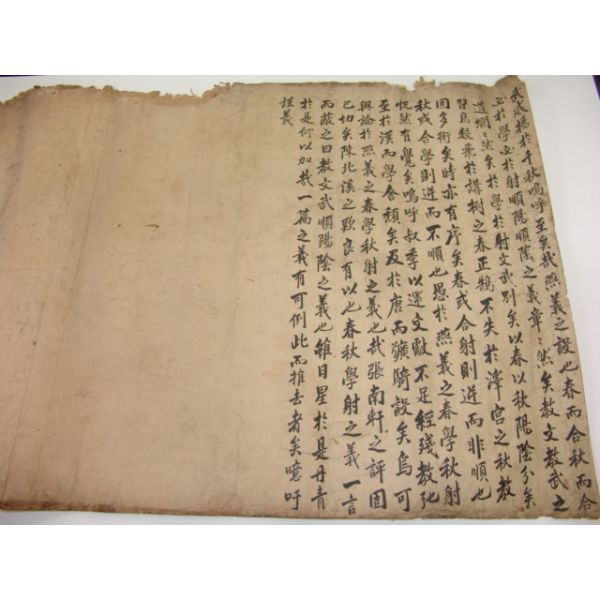 武威揚於千秋嗚呼至矣哉燕義之設也春而合秋而合
必於學必於射順陽順陰之義章〻然矣教文教武之
道炯〻然矣於學於射文武別矣以春以秋陽陰分矣
習鳥數飛於講樹之春正鵠不失於澤宮之秋教
固多術矣時亦有序矣春或合射則逆而非順也
秋或合學則逆而不順也愚於燕義之春學秋射
怳然有覺矣嗚呼叔季以還文獻不足經殘教弛
至於漢而學舍頹矣及於唐而彍騎設矣烏可
與論於燕義之春學秋射之義也哉張南軒之評固
已切矣陳北溪之歎良有以也春秋學射之義一言
而蔽之曰教文武順陽陰之義也雖日星於是丹青
於是何以加哉一篇之義有可例此而推去者矣噫吁
謹義